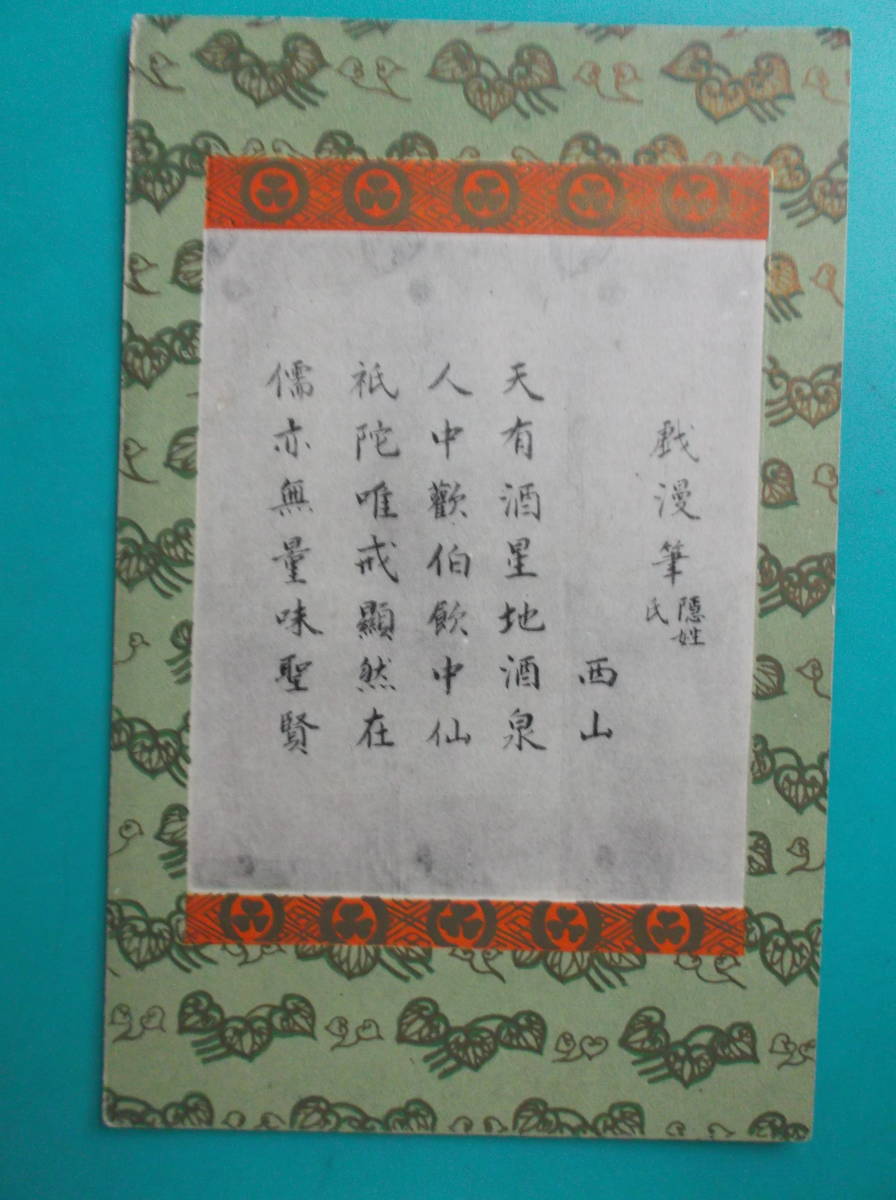 戯漫筆 隠姓氏
西山
天有酒星地酒泉
人中歡伯飲中仙
祇陀唯戒顯然在
儒亦無量味聖賢